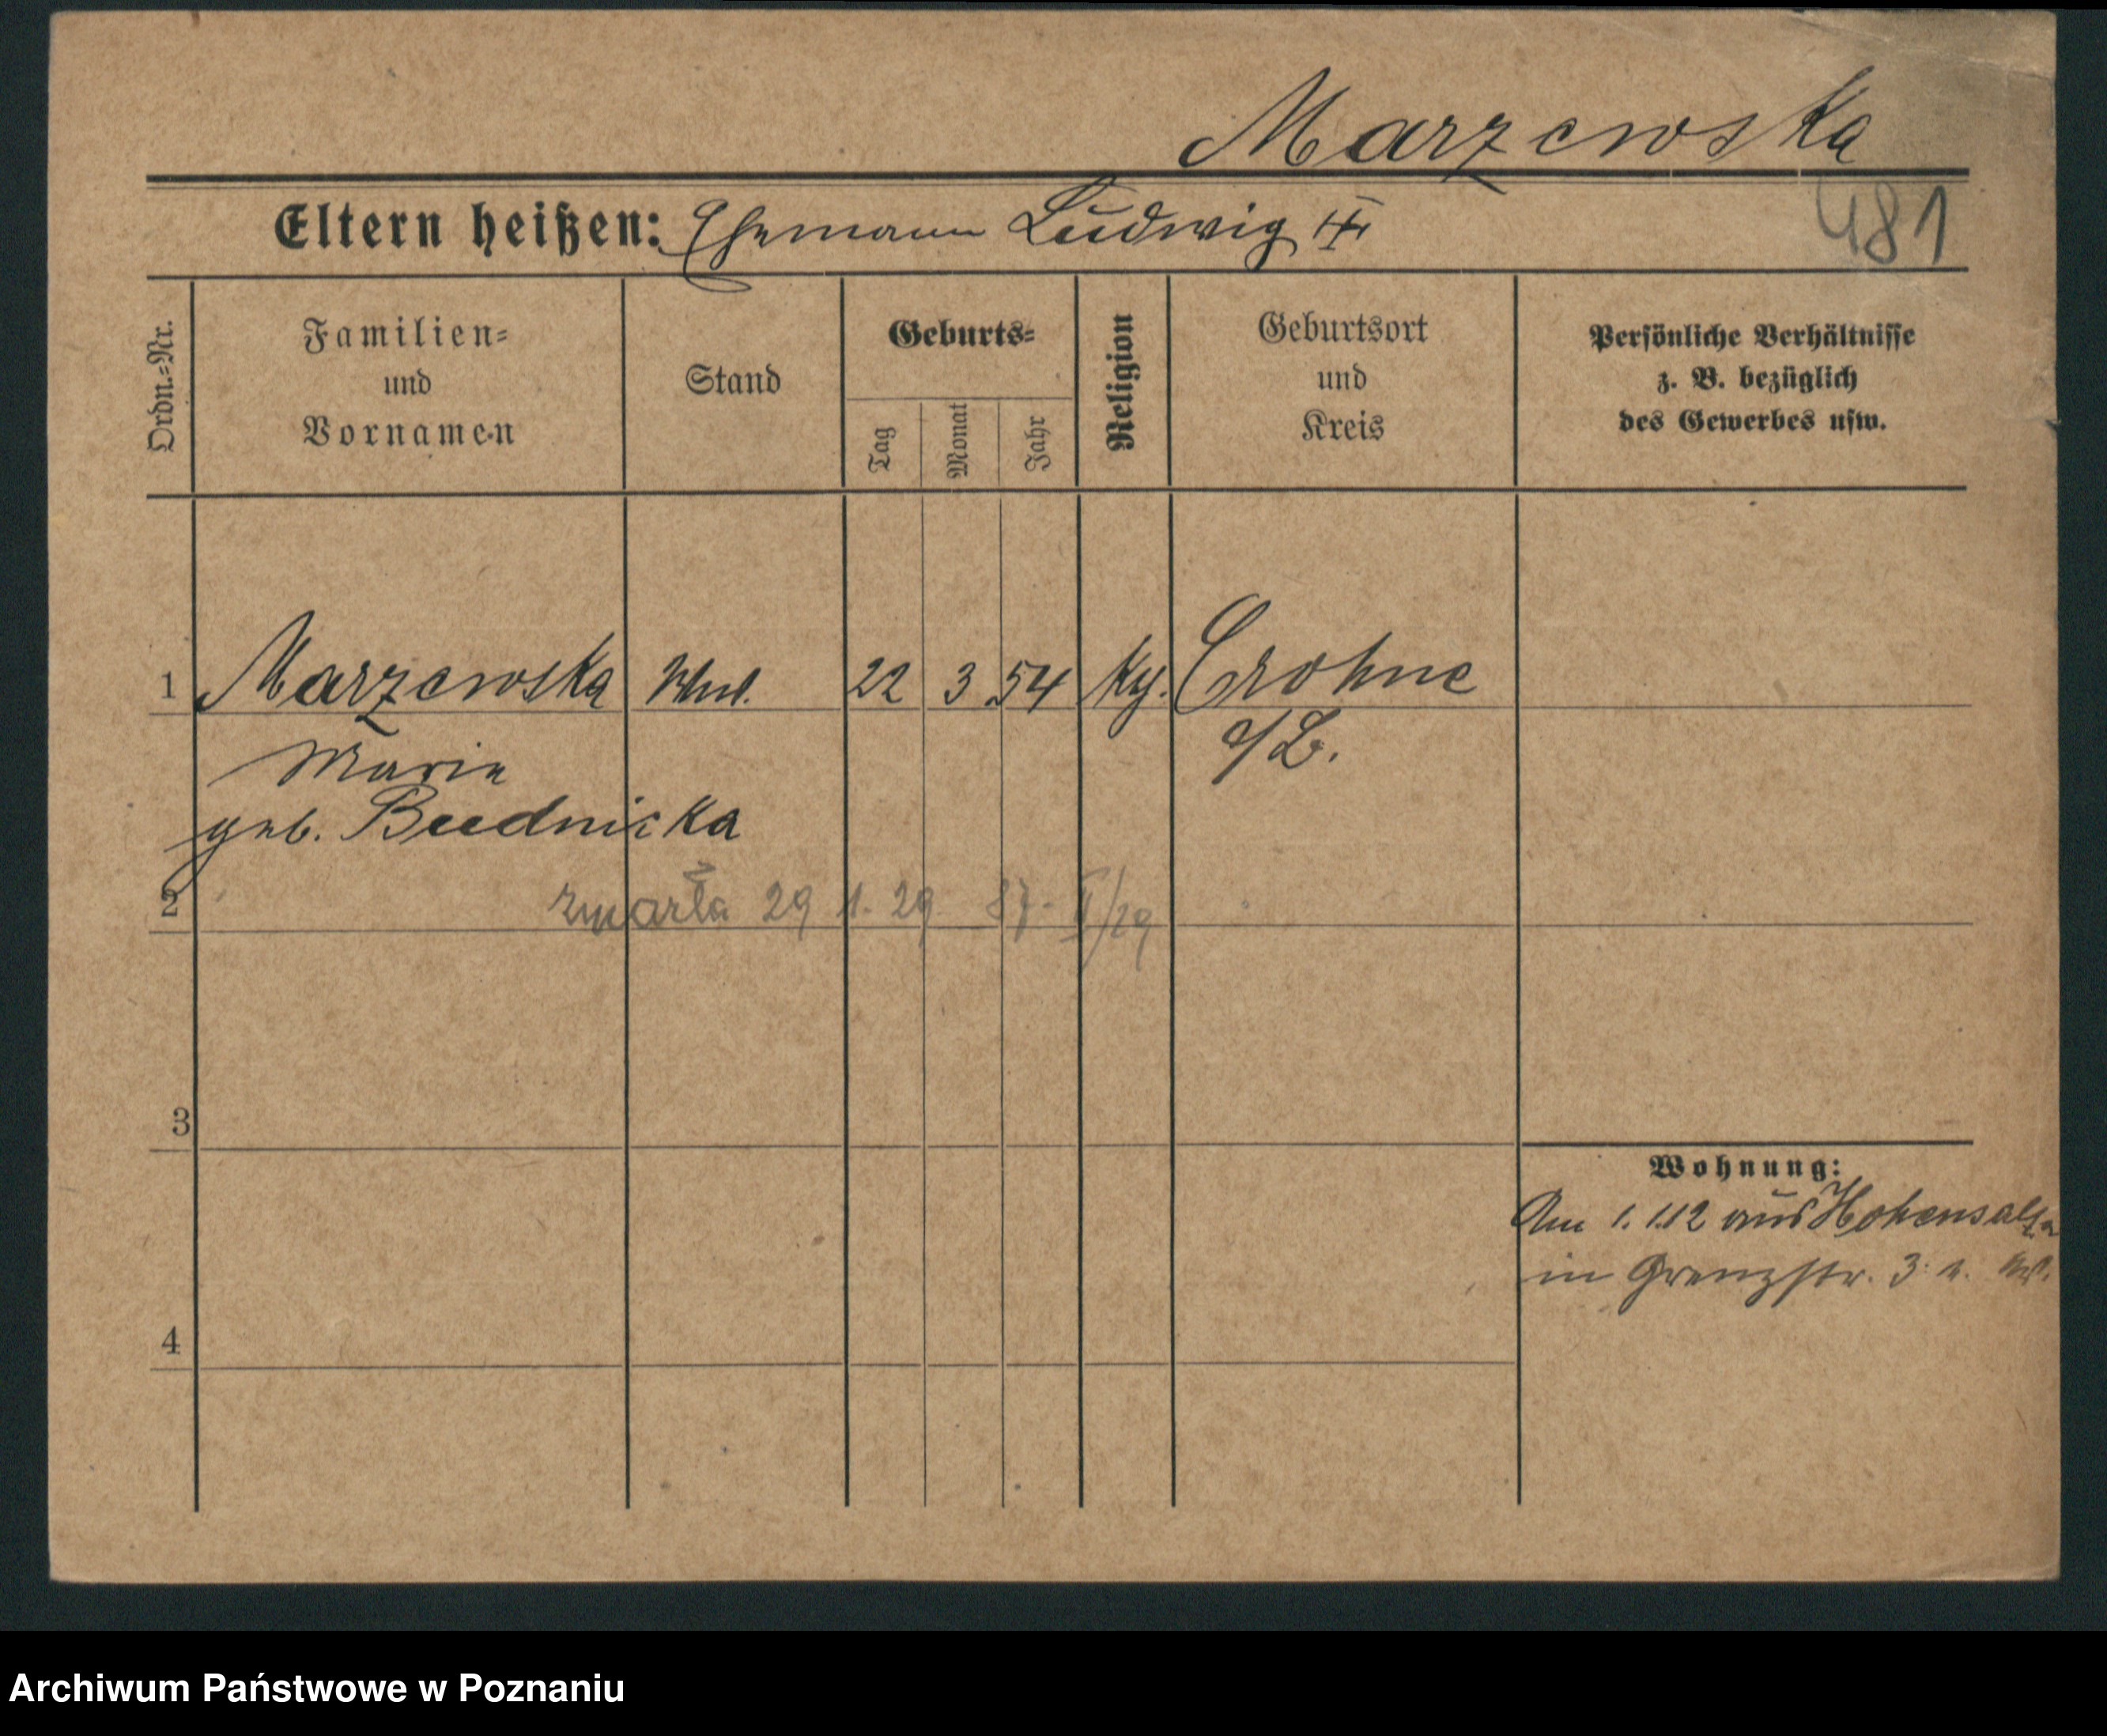 Marzewska
481
Eltern heißen: Ehemann Ludwig
Ordn.-Nr.
Familien-
und
Vornamen
Stand
Geburts-
Tag
Monat
Jahr
Religion
Geburtsort
und
Kreis
Persönliche Verhältnisse
z. B. bezüglich
des Gewerbes usw.
1 Marzewska Ww. 22 3 54 Crohne
a/B.
Marie
geb. Budnicka
2
zmarła 29 1. 29 II/29
3
4
Wohnung:
Am 1.1.12 aus Hohensalza
in Grenzstr. 3
Archiwum Państwowe w Poznaniu